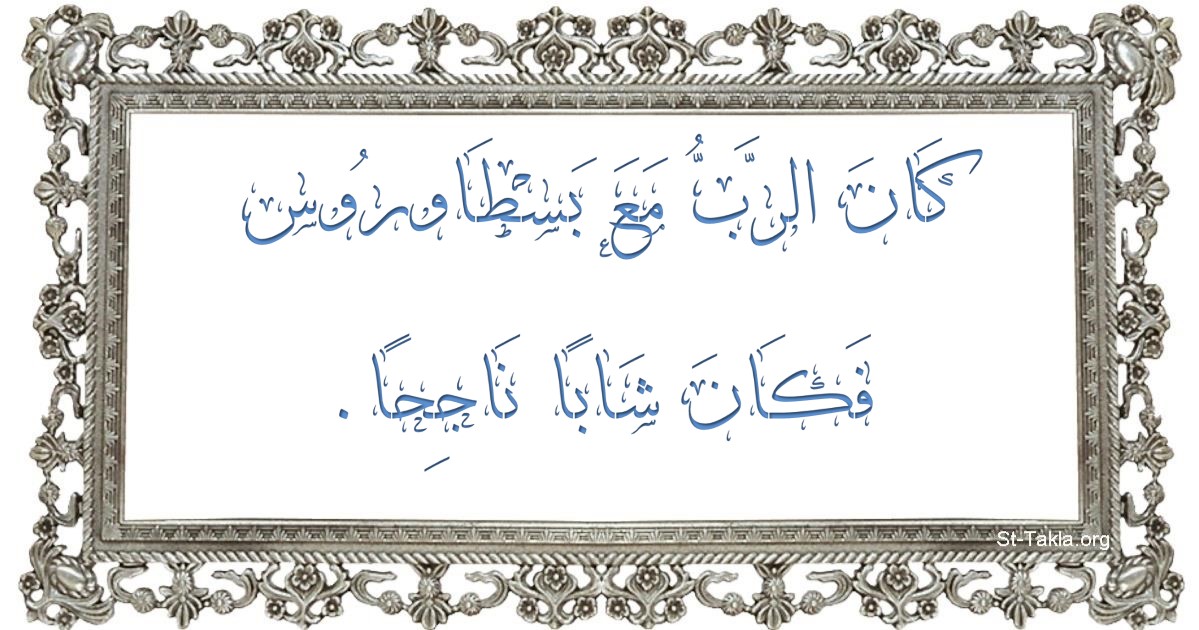 كَانَ الرَّبُّ مَعَ بَسْطَاورُوس
فَكَانَ شَابًا نَاجِحًا .
St-Takla.org